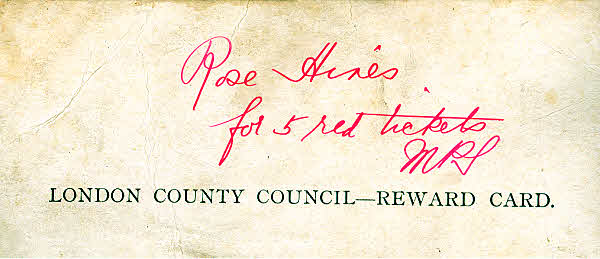 Rose Hines.
for 5 red tickets
MRS
LONDON COUNTY COUNCIL—REWARD CARD.